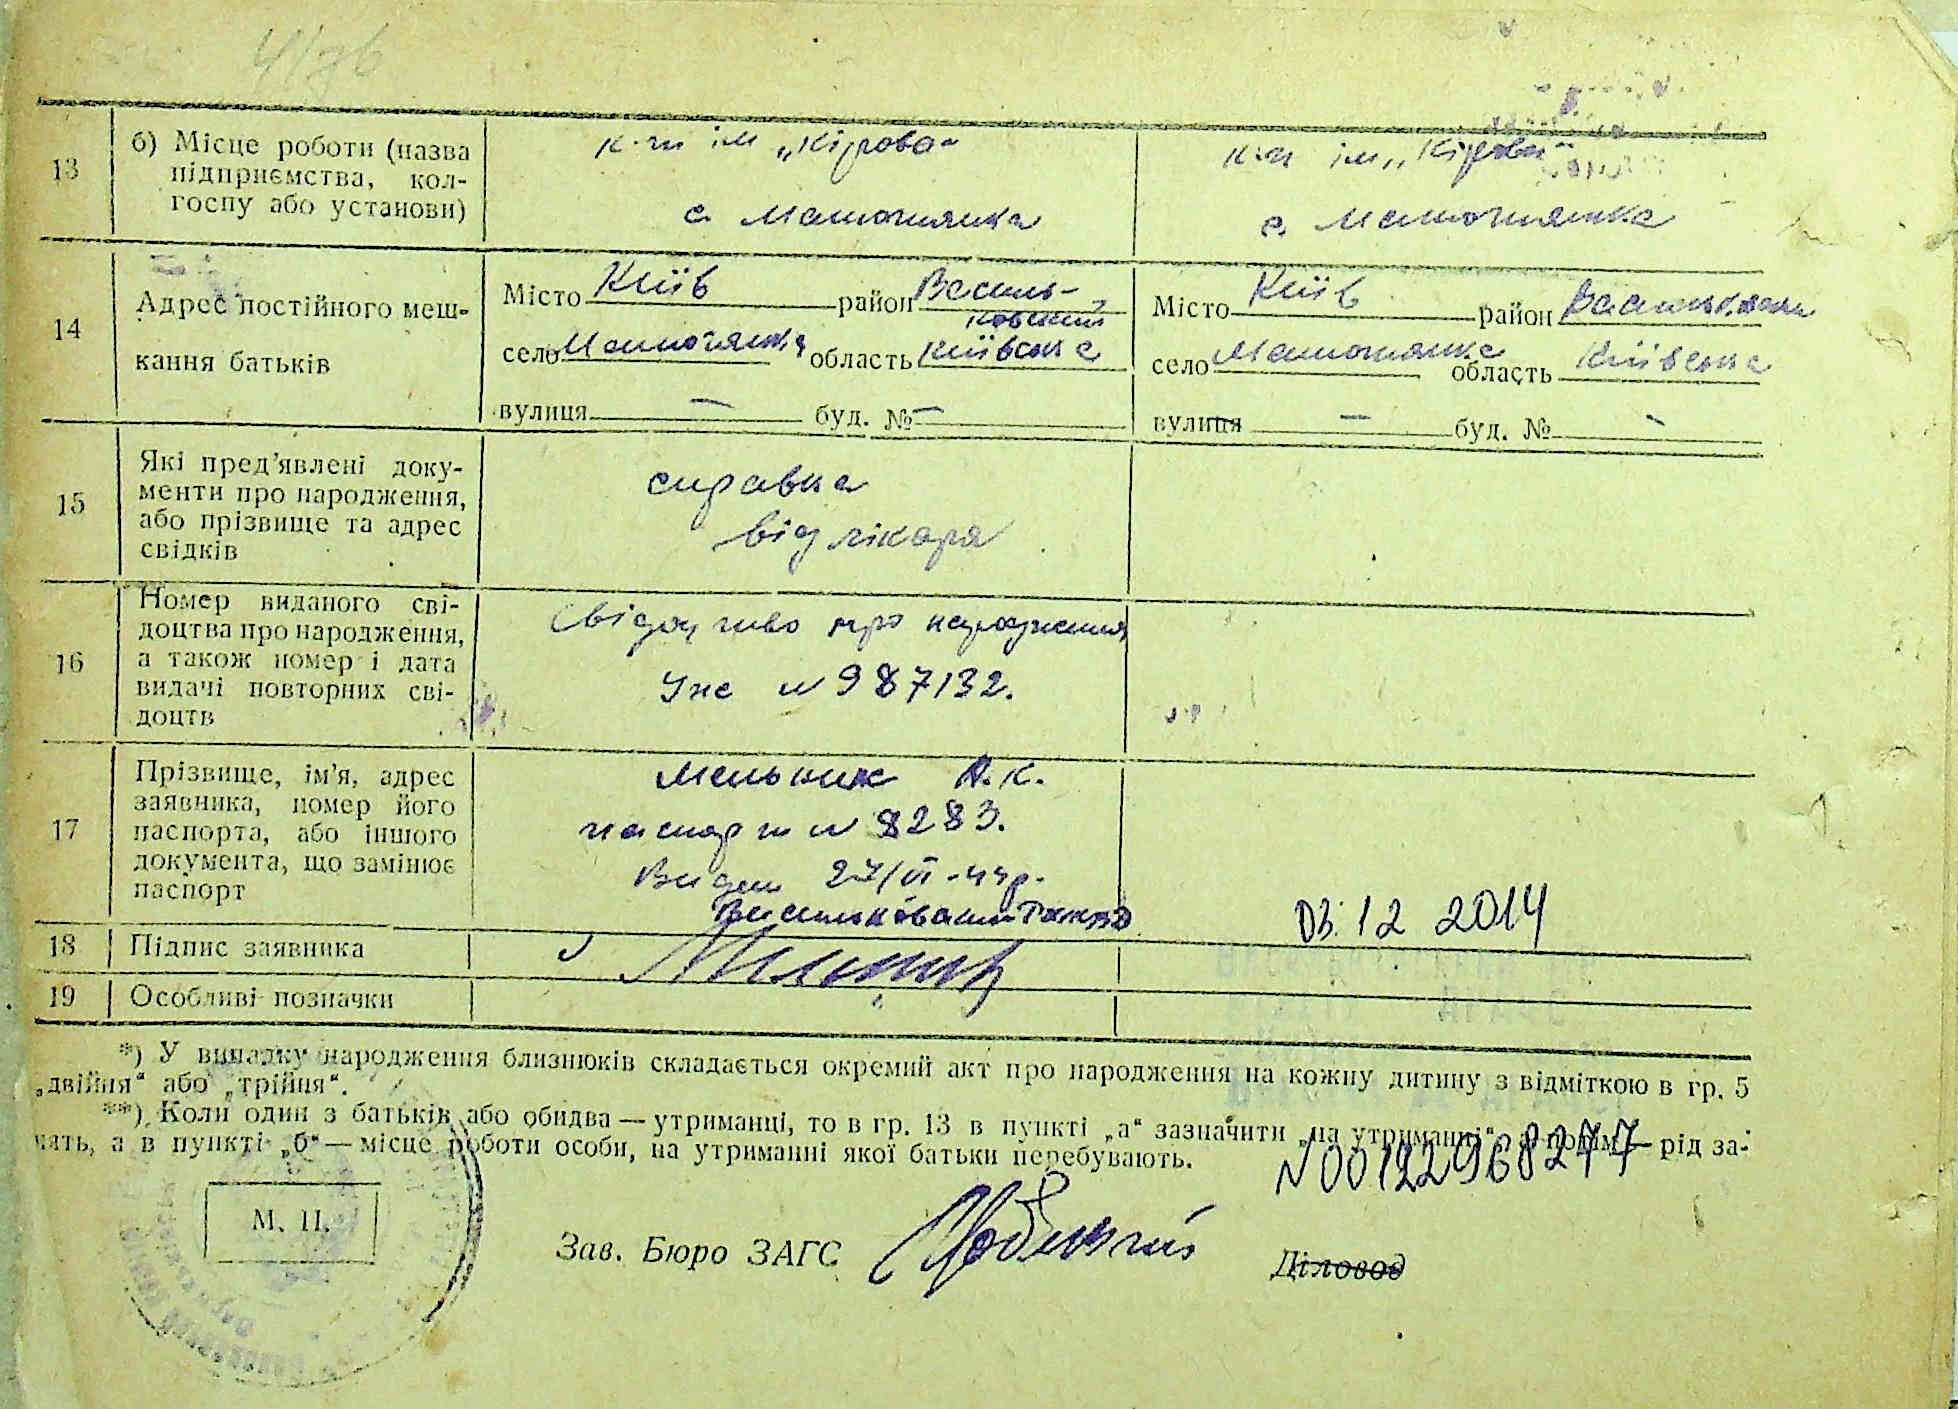 13
б) Місце роботи (назва
підприємства, кол-
госпу або установи)
к-п ім „Кірова"
с. Малютянка
к-п ім „Кірова"
с. Малютянка
14
Адрес постійного меш-
кання батьків
Місто Київ район Василь-
ковский
село Малютянка область Київська
вулиця — буд. № —
Місто Київ район
село Малютянка область Київська
вулиця — буд. № —
15
Які пред'явлені доку-
менти про народження,
або прізвище та адрес
свідків
справка
від лікаря
16
Номер виданого сві-
доцтва про народження,
а також номер і дата
видачі повторних сві-
доцтв
Свідоцтво про народження
N 987132.
17
Прізвище, ім'я, адрес
заявника, номер його
паспорта, або іншого
документа, що замінює
паспорт
Мельник А.К.
паспорт N 8283.
Видан 27/VI-44р.
03.12 2014
18
Підпис заявника
Мельник
19
Особливі позначки
*) У випадку народження близнюків складається окремий акт про народження на кожну дитину з відміткою в гр. 5
„двійня" або „трійня".
**) Коли один з батьків або обидва — утриманці, то в гр. 13 в пункті „а" зазначити „на утриманні", рід за-
нять, а в пункті „б" — місце роботи особи, на утриманні якої батьки перебувають.
N00122968277
М. П.
Зав. Бюро ЗАГС
Діловод